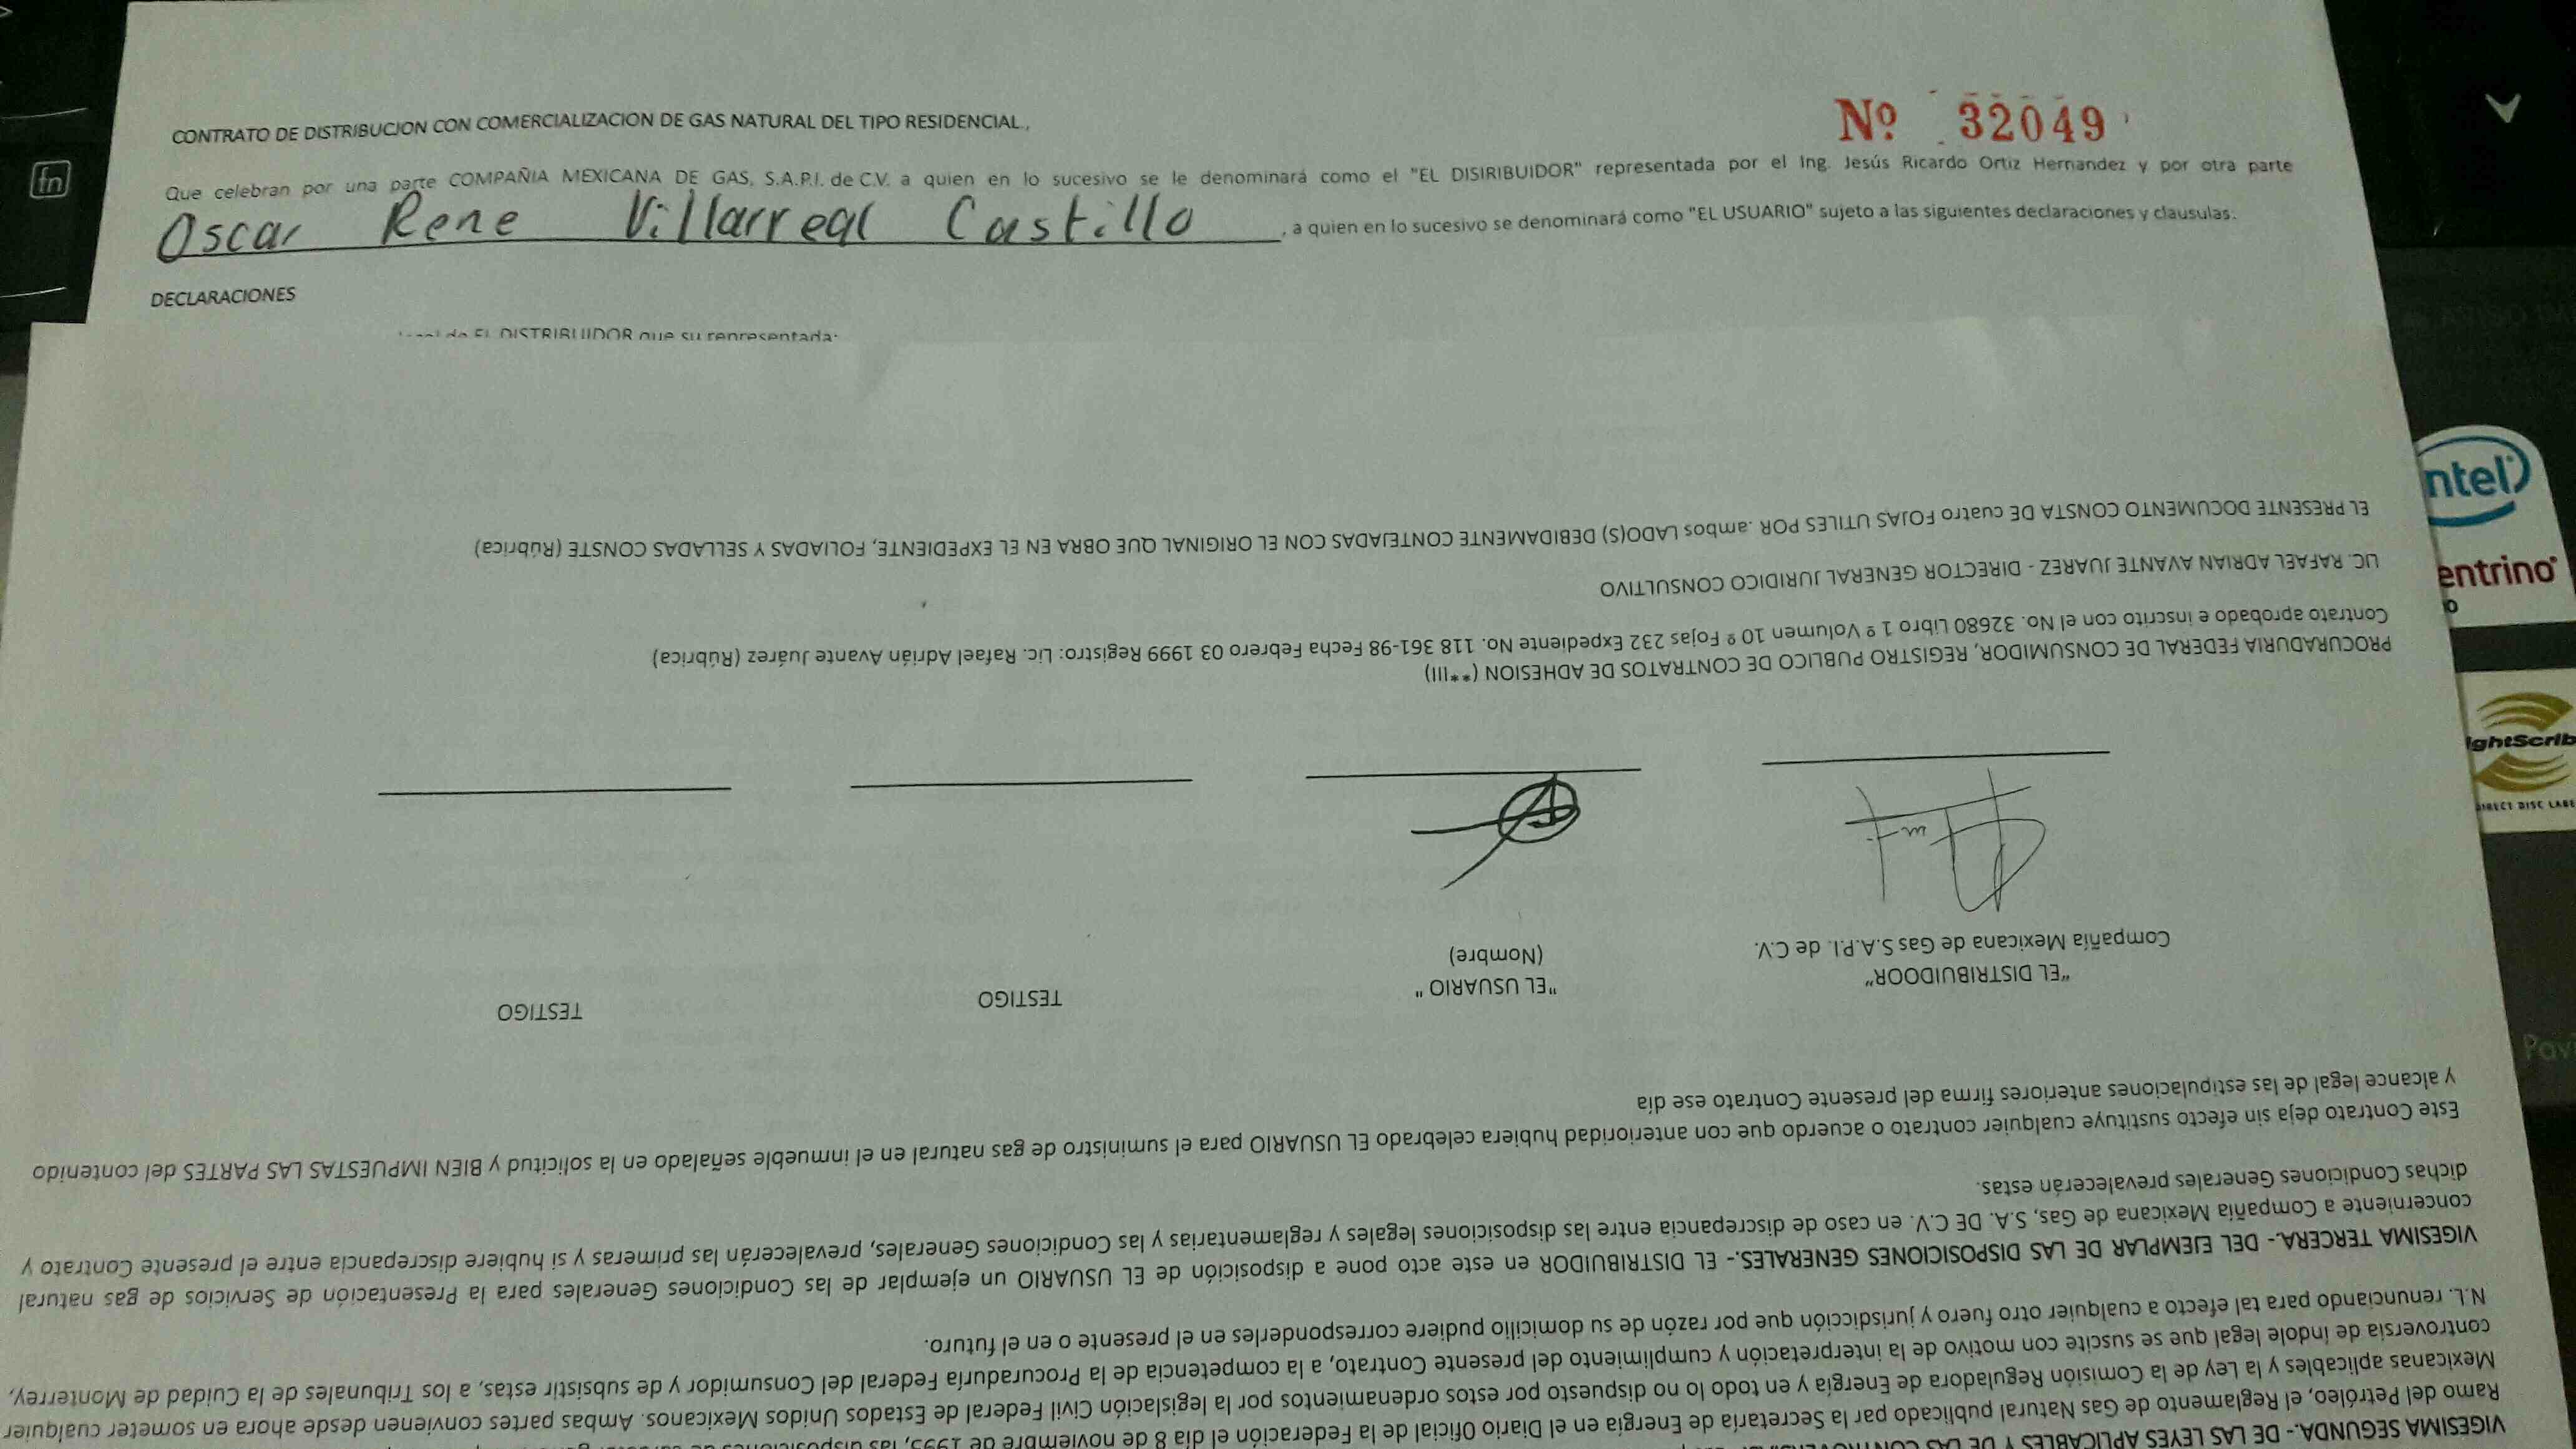 CONTRATO DE DISTRIBUCION CON COMERCIALIZACION DE GAS NATURAL DEL TIPO RESIDENCIAL.,
Nº 32049
Que celebran por una parte COMPAÑIA MEXICANA DE GAS, S.A.P.I. de C.V. a quien en lo sucesivo se le denominará como el "EL DISIRIBUIDOR" representada por el Ing. Jesús Ricardo Ortiz Hernandez y por otra parte
Oscar Rene Villarreal Castillo, a quien en lo sucesivo se denominará como "EL USUARIO" sujeto a las siguientes declaraciones y clausulas.
DECLARACIONES
de EL DISTRIBUIDOR que su representada:
VIGESIMA SEGUNDA.- DE LAS LEYES APLICABLES Y DE LAS
Ramo del Petróleo, el Reglamento de Gas Natural publicado par la Secretaría de Energía en el Diario Oficial de la Federación el día 8 de noviembre de 1995, las
Mexicanas aplicables y la Ley de la Comisión Reguladora de Energía y en todo lo no dispuesto por estos ordenamientos por la legislación Civil Federal de Estados Unidos Mexicanos. Ambas partes convienen desde ahora en someter cualquier
controversia de índole legal que se suscite con motivo de la interpretación y cumplimiento del presente Contrato, a la competencia de la Procuraduría Federal del Consumidor y de subsistir estas, a los Tribunales de la Cuidad de Monterrey,
N.L. renunciando para tal efecto a cualquier otro fuero y jurisdicción que por razón de su domicilio pudiere corresponderles en el presente o en el futuro.
VIGESIMA TERCERA.- DEL EJEMPLAR DE LAS DISPOSICIONES GENERALES.- EL DISTRIBUIDOR en este acto pone a disposición de EL USUARIO un ejemplar de las Condiciones Generales para la Presentación de Servicios de gas natural
concerniente a Compañía Mexicana de Gas, S.A. DE C.V. en caso de discrepancia entre las disposiciones legales y reglamentarias y las Condiciones Generales, prevalecerán las primeras y si hubiere discrepancia entre el presente Contrato y
dichas Condiciones Generales prevalecerán estas.
Este Contrato deja sin efecto sustituye cualquier contrato o acuerdo que con anterioridad hubiera celebrado EL USUARIO para el suministro de gas natural en el inmueble señalado en la solicitud y BIEN IMPUESTAS LAS PARTES del contenido
y alcance legal de las estipulaciones anteriores firma del presente Contrato ese día
"EL DISTRIBUIDOOR" "EL USUARIO " TESTIGO TESTIGO
Compañía Mexicana de Gas S.A.P.I. de C.V. (Nombre)
PROCURADURIA FEDERAL DE CONSUMIDOR, REGISTRO PUBLICO DE CONTRATOS DE ADHESION (**III)
Contrato aprobado e inscrito con el No. 32680 Libro 1 º Volumen 10 º Fojas 232 Expediente No. 118 361-98 Fecha Febrero 03 1999 Registro: Lic. Rafael Adrián Avante Juárez (Rúbrica)
LIC. RAFAEL ADRIAN AVANTE JUAREZ - DIRECTOR GENERAL JURIDICO CONSULTIVO
EL PRESENTE DOCUMENTO CONSTA DE cuatro FOJAS UTILES POR .ambos LADO(S) DEBIDAMENTE CONTEJADAS CON EL ORIGINAL QUE OBRA EN EL EXPEDIENTE, FOLIADAS Y SELLADAS CONSTE (Rúbrica)
fn
ntel
entrino
ightScrib
DIRECT DISC LABE
Pavi